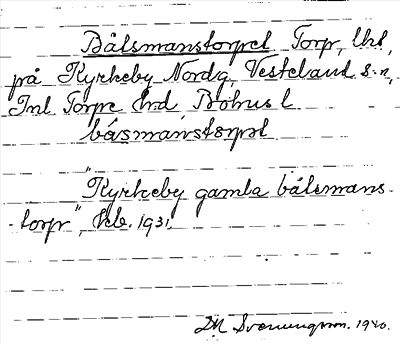 Bålsmanstorpet Torp, Lht,
på Kyrkeby Nordg, Vesteland s:n,
Inl Torpe hrd, Bohus l
båsmanstorpet
"Kyrkeby gamla bålsmans-
-torp", kb. 1931.
D.N. Svenningsson. 1940.